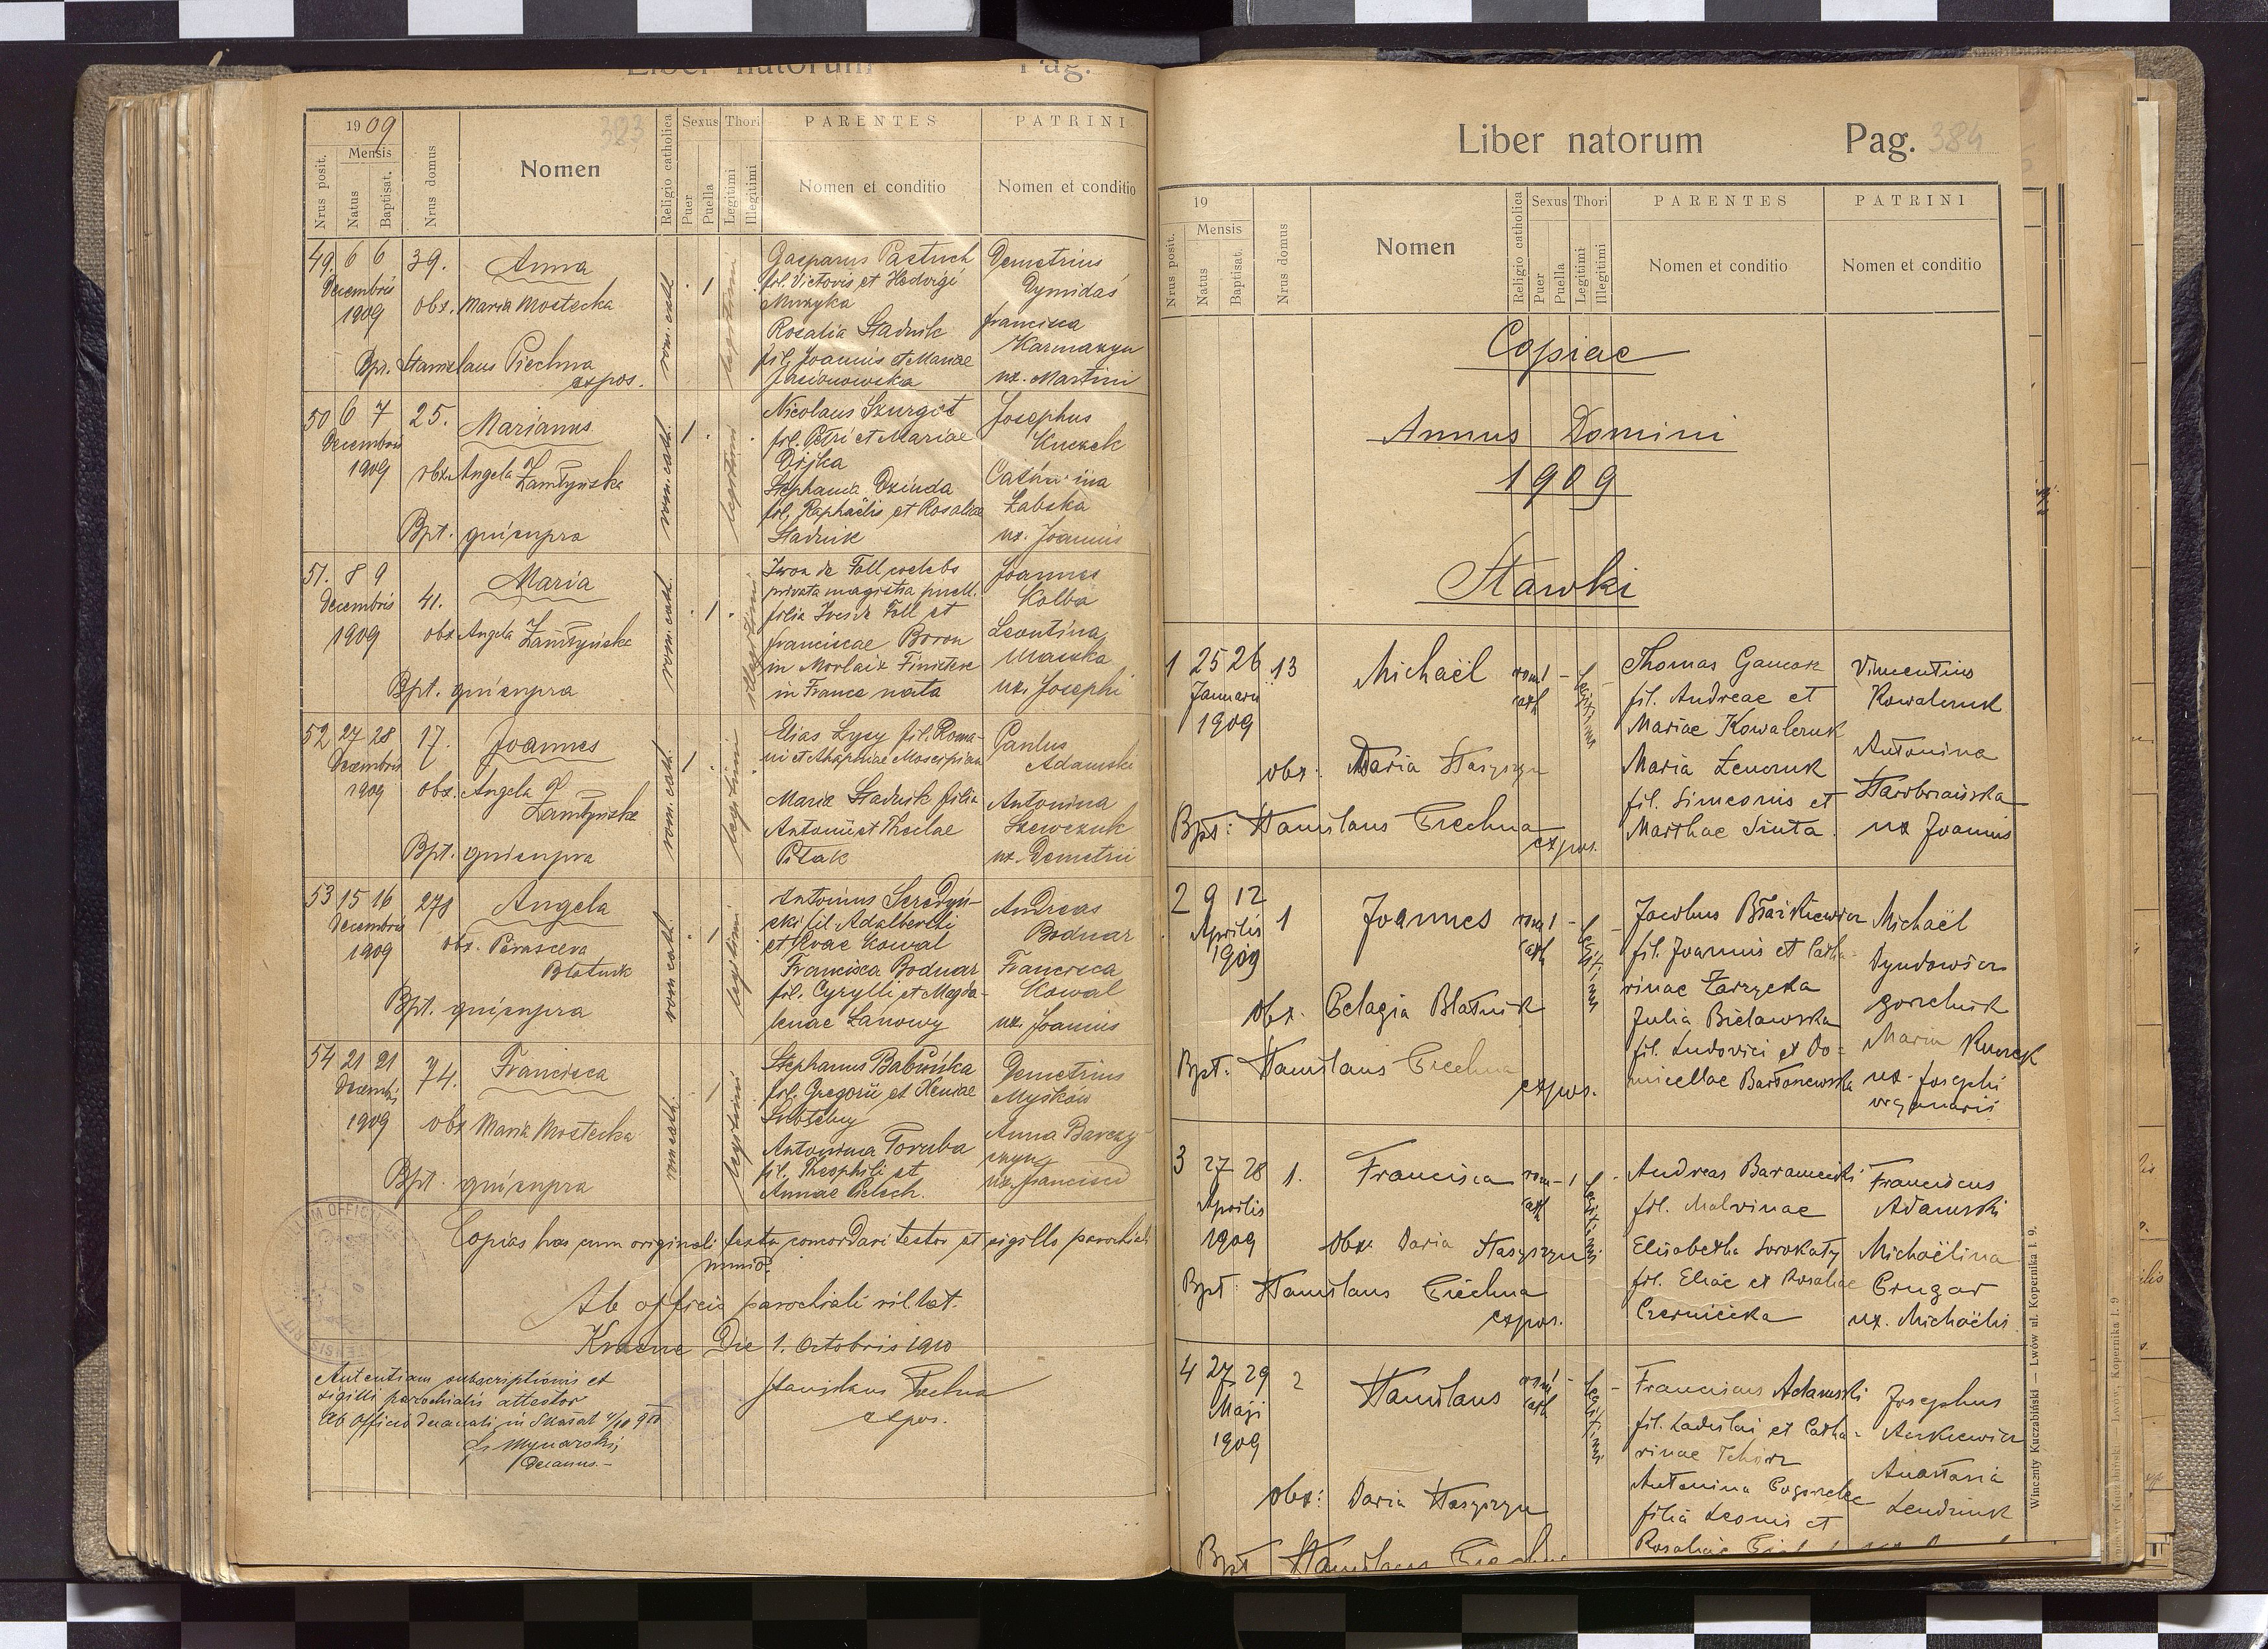 Liber natorum Pag.
323
1909
Nrus posit.
Mensis
Natus
Baptisat.
Nrus domus
Nomen
Religio catholica
Sexus
Puer
Puella
Thori
Legitimi
Illegitimi
PARENTES
Nomen et conditio
PATRINI
Nomen et conditio
49. 6 6 39. Anna
Decembris
1909
obs. Maria Mostecka
Bpt. Stanislaus Piechna
expos.
rom. cath. 1 legitimi
Gasparus Pastuch
fil. Victoris et Hedvigi
Muzyka
Rosalia Stadnik
fil. Joannis et Mariae
Jasionowska
Demetrius
Dymidas
Francisca
Karmazyn
ux. Martini
50 6 7 25. Marianus
Decembris
1909
obs. Angela Zamłyńska
Bpt. qui supra
rom. cath. 1 legitimi
Nicolaus Szurgot
fil. Petri et Mariae
Dijka
Stephania Dziuda
fil. Raphaëlis et Rosaliae
Stadnik
Josephus
Kuczek
Catharina
Żabska
ux. Joannis
51. 8 9 41. Maria
Decembris
1909
obs. Angela Zamłyńska
Bpt. qui supra
rom. cath. 1 illegitimi
Ivon de Toll coelebs
privata magistra puell.
filia Toll et
Franciscae Boron
in Morlaix Finistere
in France nata
Joannes
Kolba
Leontina
Maszka
ux. Josephi
52 27 28 17. Joannes
Decembris
1909
obs. Angela Zamłyńska
Bpt. qui supra
rom. cath. 1 legitimi
Elias Łysy fil. Roma-
ni et Ahaphiae
Maria Stadnik filia
Antonii et Theclae
Pitak
Paulus
Adamski
Antonina
Szewczuk
ux. Demetrii
53 15 16 278 Angela
Decembris
1909
obs. Parasceva
Blatnik
Bpt. qui supra
rom. cath. 1 legitimi
Antonius Seredyń-
ski fil. Adalberthi
et Evae Kowal
Francisca Bodnar
fil. Cyrylli et Magda-
lenae Łanowy
Andreas
Bodnar
Francisca
Kowal
ux. Joannis
54 21 21 74. Francisca
Decembris
1909
obs Maria Mostecka
Bpt. qui supra
rom. cath. 1 legitimi
Stephanus Babińka
fil. Gregorii et Xeniae
Antonina Toruba
fil. Theophili et
Annae Pelech.
Demetrius
Myśków
Anna Barczy-
szyn
ux. Francisci
Copias has cum originali textu concordari testor et sigillo parochiali
munio.
Ab officio parochiali rit. lat.
Krasne Die 1. Octobris 1910
Stanislaus Piechna
expos.
Autentiam subscriptionis et
sigilli parochialis attestor
Ab Officio decanali in Skałat
Mynarski
Decanus.-
Liber natorum Pag. 384
19
Nrus posit.
Mensis
Natus
Baptisat.
Nrus domus
Nomen
Religio catholica
Sexus
Puer
Puella
Thori
Legitimi
Illegitimi
PARENTES
Nomen et conditio
PATRINI
Nomen et conditio
Copiae
Annus Domini
1909
Stawki
1 25 26 13 Michaël
Januarii
1909
obs. Daria Stasyszyn
Bpt: Stanislaus Piechna
expos.
rom cath 1 - Legitimus
Thomas Gancarz
fil. Andreae et
Mariae Kowalczuk
Maria Lewczuk
fil. Simeonis et
Marthae Siuta.
Vincentius
Kowalczuk
Antonina
Starobrańska
ux Joannis
2 9 12 1 Joannes
Aprilis
1909
obs. Pelagia Blatnik
Bpt. Stanislaus Piechna
expos.
rom cath 1 - Legitimus
Jacobus Błażkiewicz
fil. Joannis et Catha-
rinae Zarzycka
Julia Bielawska
fil. Ludovici et Do-
micellae Bartoszewska
Michaël
Dyndowicz
gorzelnik
Maria Kuczek
ux. Josephi
organarii
3 27 28 1. Francisca
Aprilis
1909
obs. Daria Stasyszyn
Bpt: Stanislaus Piechna
expos.
rom cath - 1 Legitimi
Andreas Baraniecki
fil. Malvinae
Elisabetha Sorokaty
fil. Eliae et Rosaliae
Czerniecka
Franciscus
Adamski
Michaëlina
Prugar
ux. Michaëlis
4 27 29 2 Stanislaus
Maji
1909
obs: Daria Stasyszyn
Bpt Stanislaus Piechna
rom cath 1 - Legitimi
Franciscus Adamski
fil. Ladislai et Catha-
rinae Tchórz
Antonina
filia Leonis et
Rosaliae
Josephus
Anastasia
Lendziuk
Winczenty Kuczabiński — Lwów ul. Kopernika l. 9.